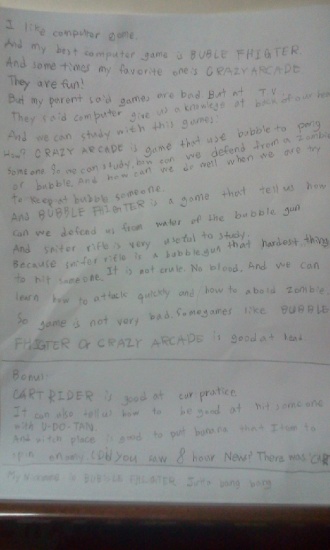 I like computer game.
And my best computer game is BUBLE FHIGTER
And some times my favorite one is CRAZY ARCADE.
They are fun!
But my parent said games are bad. But at T.V
They said computer give us a knowlege at back of our head
And we can study with this games!
How? CRAZY ARCADE is game that use bubble to
someone So we can study, how can we defend from a zombie
or bubble. And how can we do well when we are try
to keep at bubble someone.
And BUBBLE FHIGTER is a game that tell us how
can we defend us from water of the bubble gun
And snifer rifle is very useful to study.
Because snifer rifle is a bubble gun that hardest thing
to hit someone. It is not crule. No blood. And we can
learn how to attack quickly and how to aboid zombie.
So game is not very bad. Some games like BUBBLE
FHIGTER or CRAZY ARCADE is good at head.
Bonus:
CART RIDER is good at car pratice.
It can also tell us how to be good at hit someone
with U-DO-TAN.
And witch place is good to put banana that item to
spin enemy. (Did you saw 8 hour New? There was CAR
My nickname is BUBBLE FHIGTER